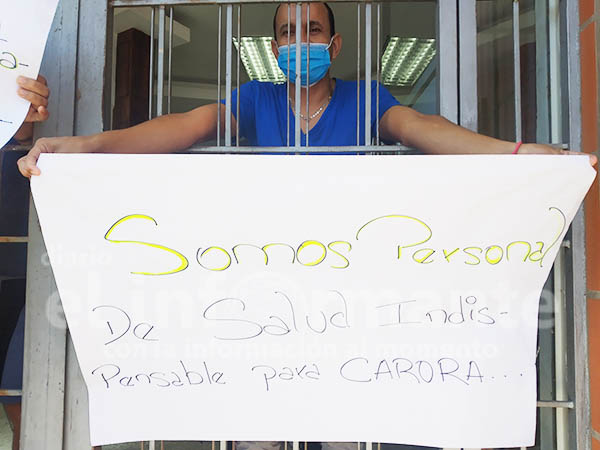 Somos Personal
De Salud Indis-
Pensable para CARORA...
diario
el informante
con la información al momento